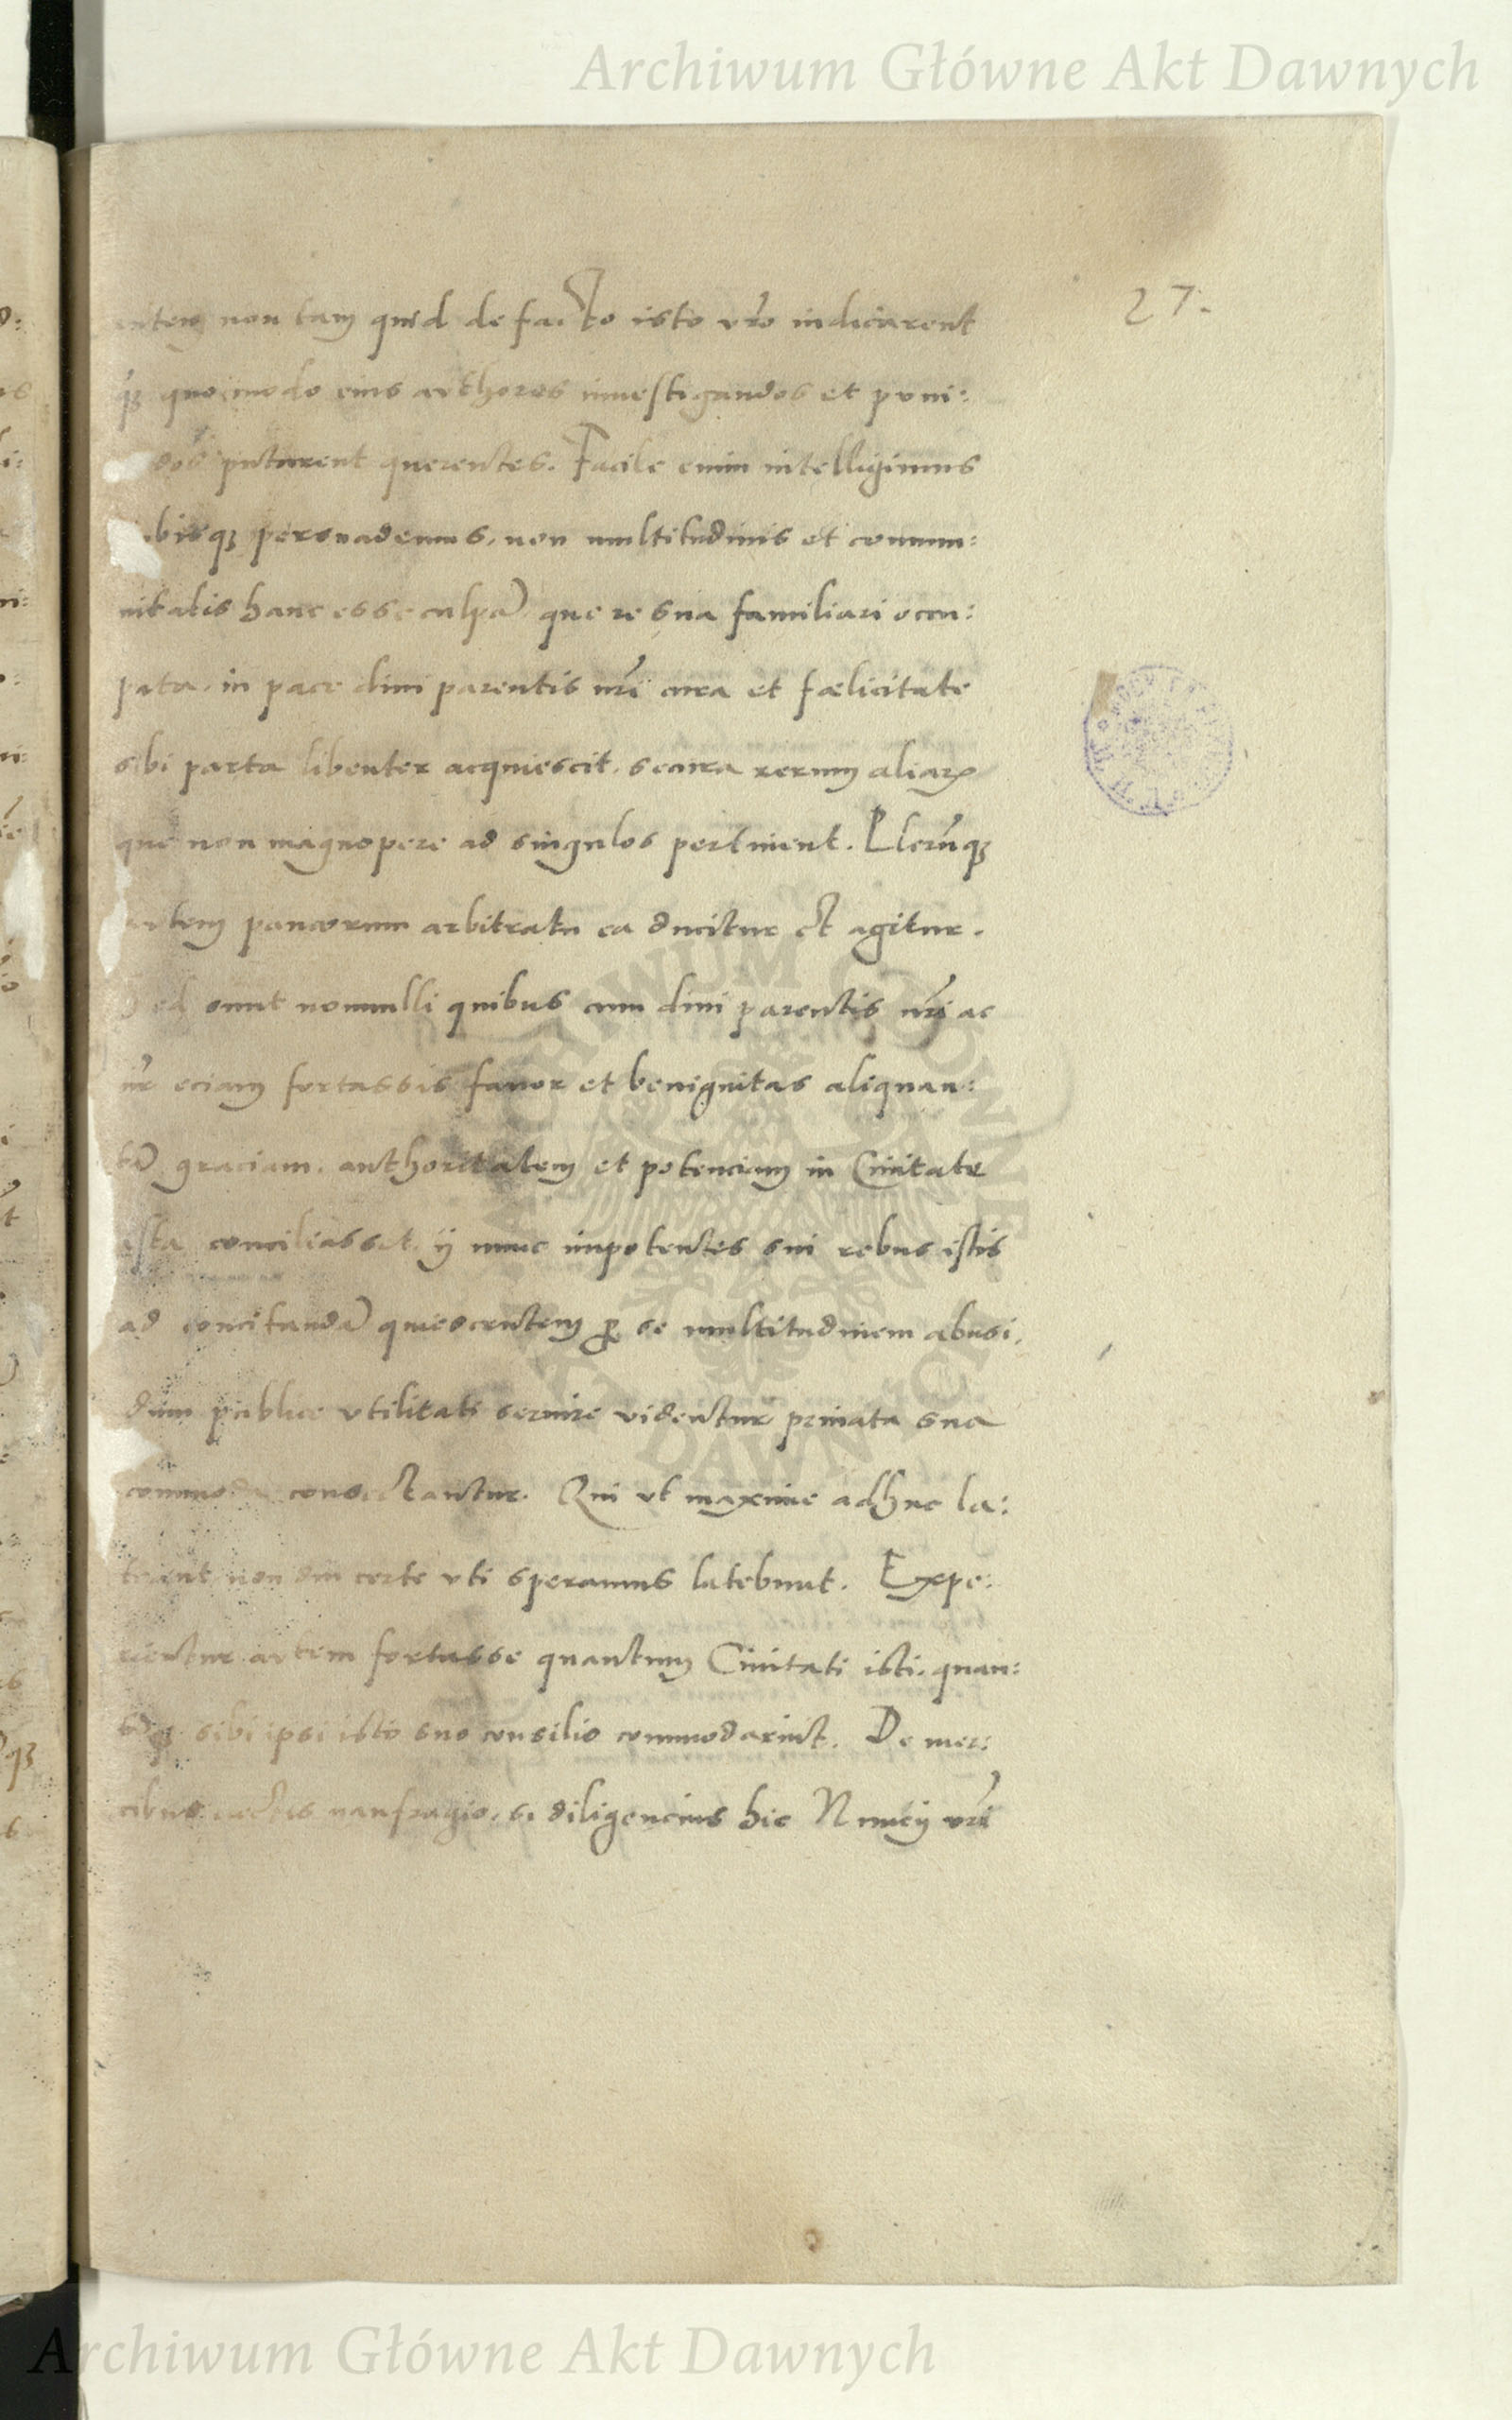 Archiwum Główne Akt Dawnych
27.
autem non tam quid de facto isto vr̃o indicarent
q̃ꝫ quomodo eius authores inuestigandos et puni:
dos putarent querentes. Facile enim intelligimus
bisqꝫ persuademus, non multitudinis et commu:
nitatis hanc esse culpã, que re sua familiari occu:
pata, in pace diui parentis nr̃i cura et fœlicitate
sibi parta libenter acquiescit, secura rerum aliarꝝ
que non magnopere ad singulos pertinent. Plerũqꝫ
autem paucorum arbitratu ea ducitur et agitur.
Sed sunt nonnulli quibus cum diui parentis nr̃i ac
nr̃ eciam fortassis fauor et benignitas aliquan:
tã graciam, authoritatem et potenciam in Ciuitate
ista conciliasset, ij nunc impotentes sui rebus istis
ad concitandã quiescentem ꝑ se multitudinem abusi,
dum publice vtilitati seruire videntur priuata sua
commoda consectantur. Qui vt maxime adhuc la:
teant non diu certe vti speramus latebunt. Expe:
rientur autem fortasse quantum Ciuitati isti, quan:
tũqꝫ sibi ipsi isto suo consilio commodarint. De mer:
cibus eiectis naufragio, si diligencius hic Nuncij vr̃i
ARCHIWUM GŁÓWNE AKT DAWNYCH
Archiwum Główne Akt Dawnych